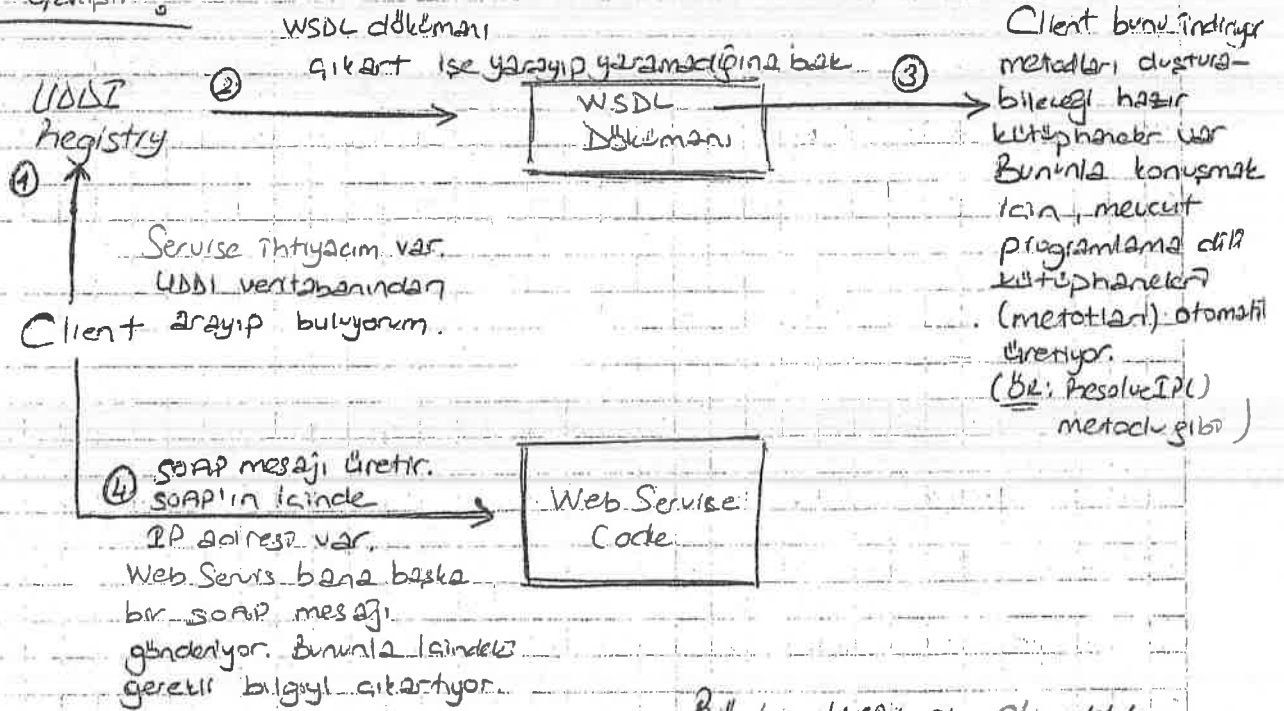 WSDL dökümanı
çıkart işe yarayıp yaramadığına bak
UDDI
Registry
②
WSDL
Dökümanı
③
Client bunu indiriyor
metodları oluştura-
bileceği hazır
kütüphaneler var
Bununla konuşmak
için, mevcut
programlama dili
kütüphaneleri
(metotları) otomatik
üretiyor.
(ÖR: ResolveIP()
metodu gibi)
①
Servise ihtiyacım var.
UDDI veritabanından
Client arayıp buluyorum.
④ SOAP mesajı üretir.
SOAP'ın içinde
IP adresi var.
Web Servis bana başka
bir SOAP mesajı
gönderiyor. Bununla içindeki
gerekli bilgiyi çıkartıyor.
Web Servise
Code